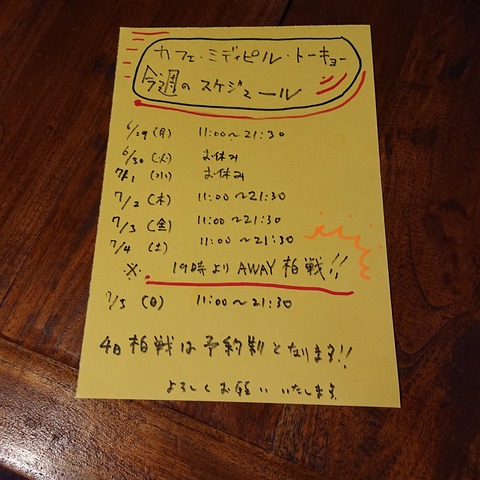 カフェ・ミディピル・トーキョー
今週のスケジュール
6/29(月) 11:00~21:30
6/30(火) お休み
7/1(水) お休み
7/2(木) 11:00~21:30
7/3(金) 11:00~21:30
7/4(土) 11:00~21:30
※ 19時よりAWAY柏戦!!
7/5(日) 11:00~21:30
4日柏戦は予約制となります!!
よろしくお願いいたします。